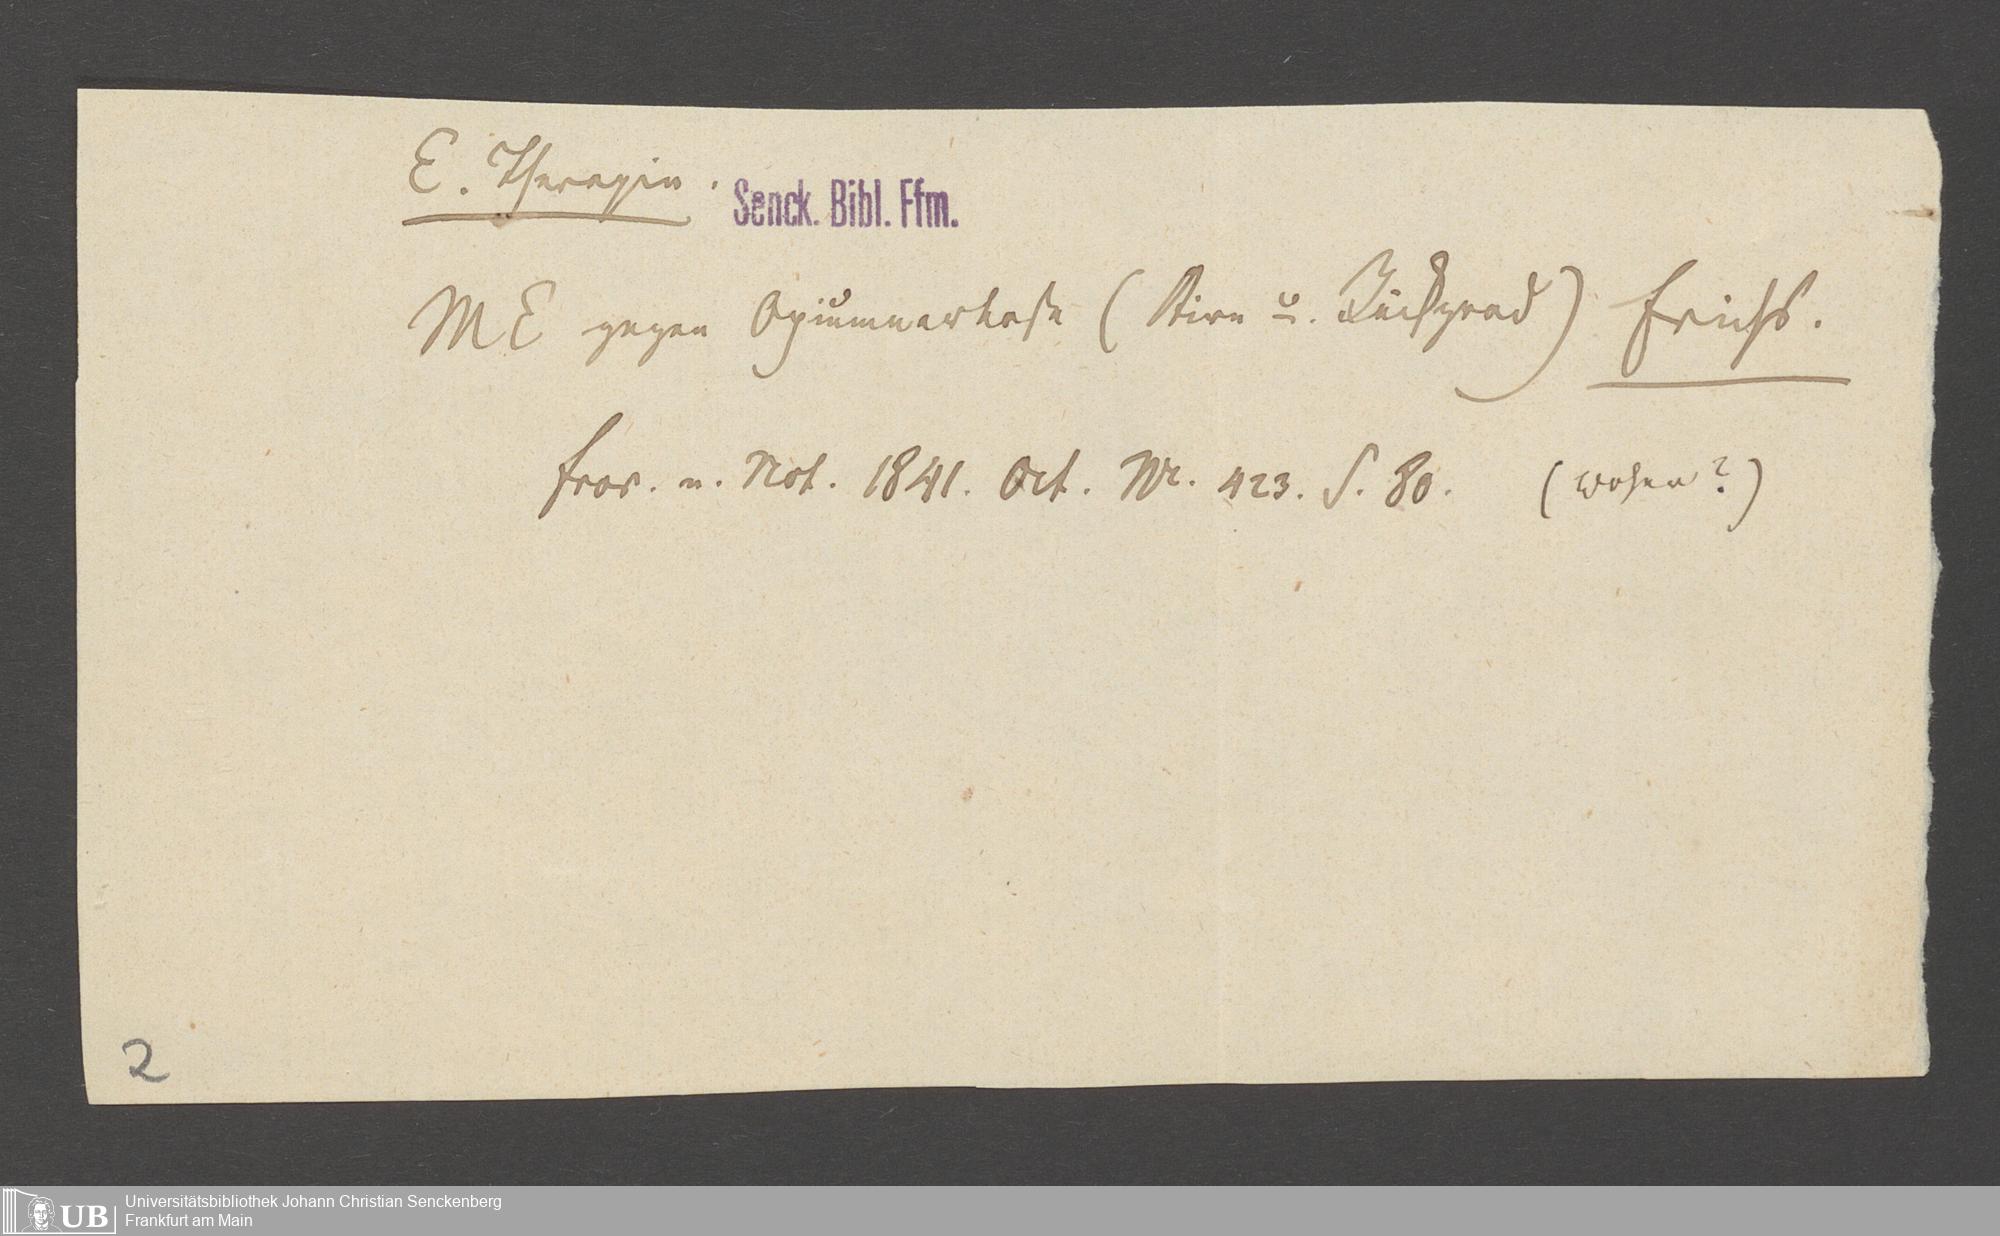 E. Therapie.
Senck. Bibl. Ffm.
ME gegen Opiumnarkose (Stirn u. Rückgrad) Erichs.
Fror. n. Not. 1841. Oct. Nr. 423. S. 80. (woher?)
2
UB
Universitätsbibliothek Johann Christian Senckenberg
Frankfurt am Main